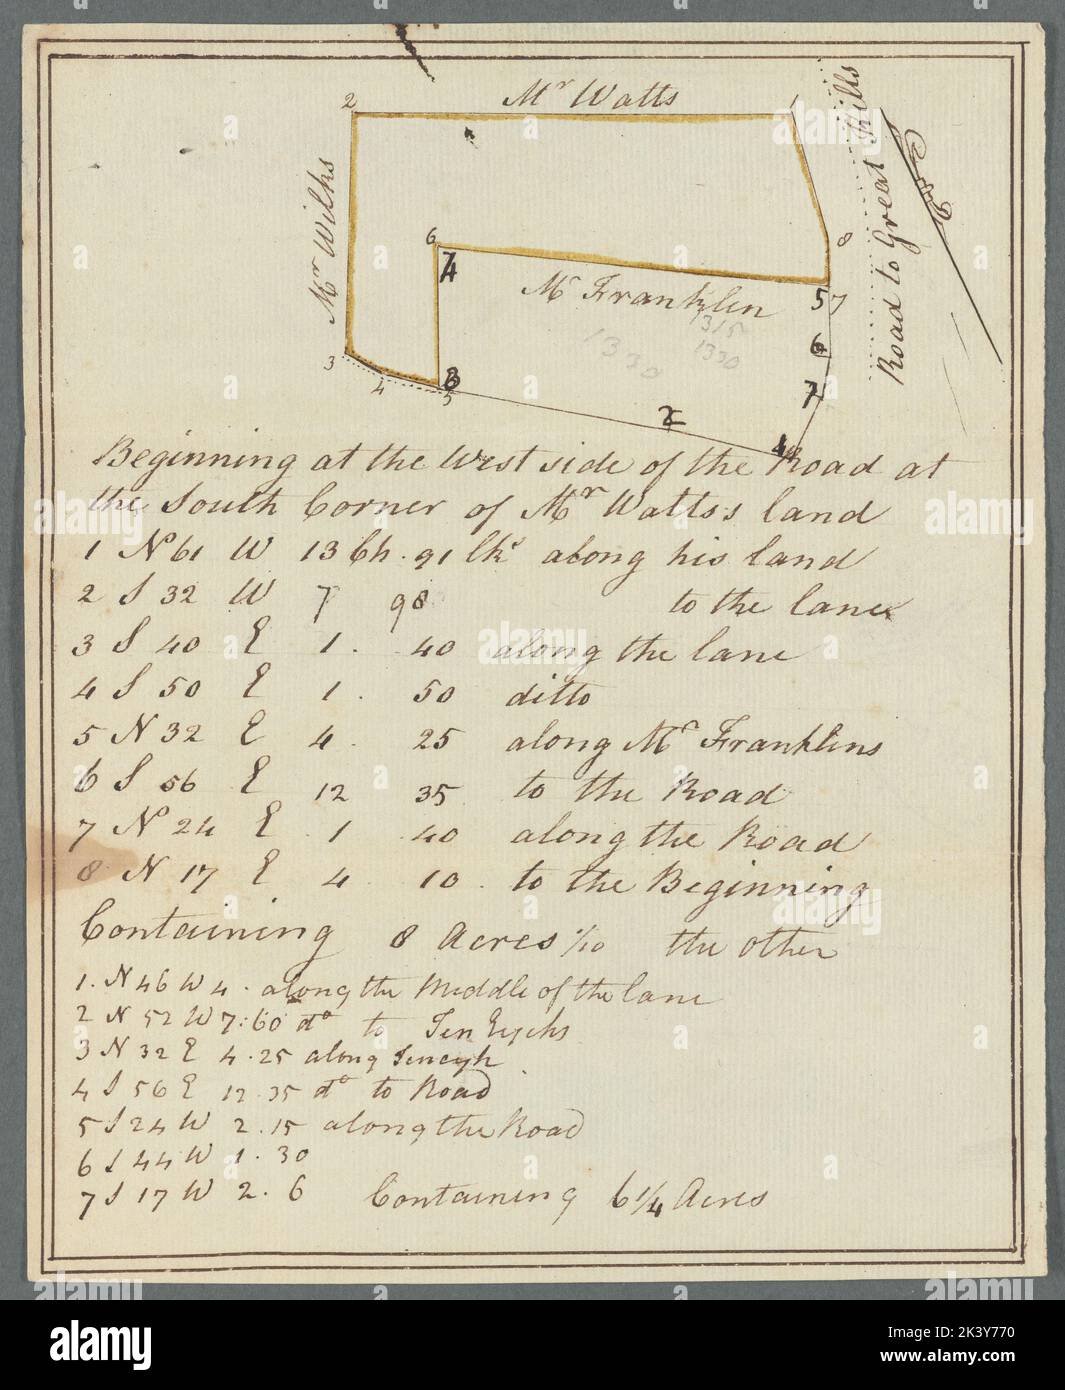 2
Mr Watts
1
Mr Wilks
Road to Great Kills
6
8
74
Mr Franklin
5 7
1315
1330
1330
6
3
4
3
5
7
2
Beginning at the West side of the Road at
the South Corner of Mr Watts's land
1 No 61 W 13 Ch. 91 lks along his land
2 S 32 W 7 98 to the lane
3 S 40 E 1. 40 along the lane
4 S 50 E 1. 50 ditto
5 N 32 E 4. 25 along Mr Franklins
6 S 56 E 12 35 to the Road
7 No 24 E 1 40 along the Road
8 N 17 E 4 10. to the Beginning
Containing 8 Acres 1/10 the other
1. N 46 W 4. along the Middle of the lane
2 N 52 W 7:60 do to Ten Eycks
3 N 32 E 4.25 along Teneyk
4 S 56 E 12.35 do to Road
5 S 24 W 2.15 along the Road
6 S 44 W 1.30
7 S 17 W 2.6 Containing 6 1/4 Acres
alamy
Image ID: 2K3Y770
www.alamy.com